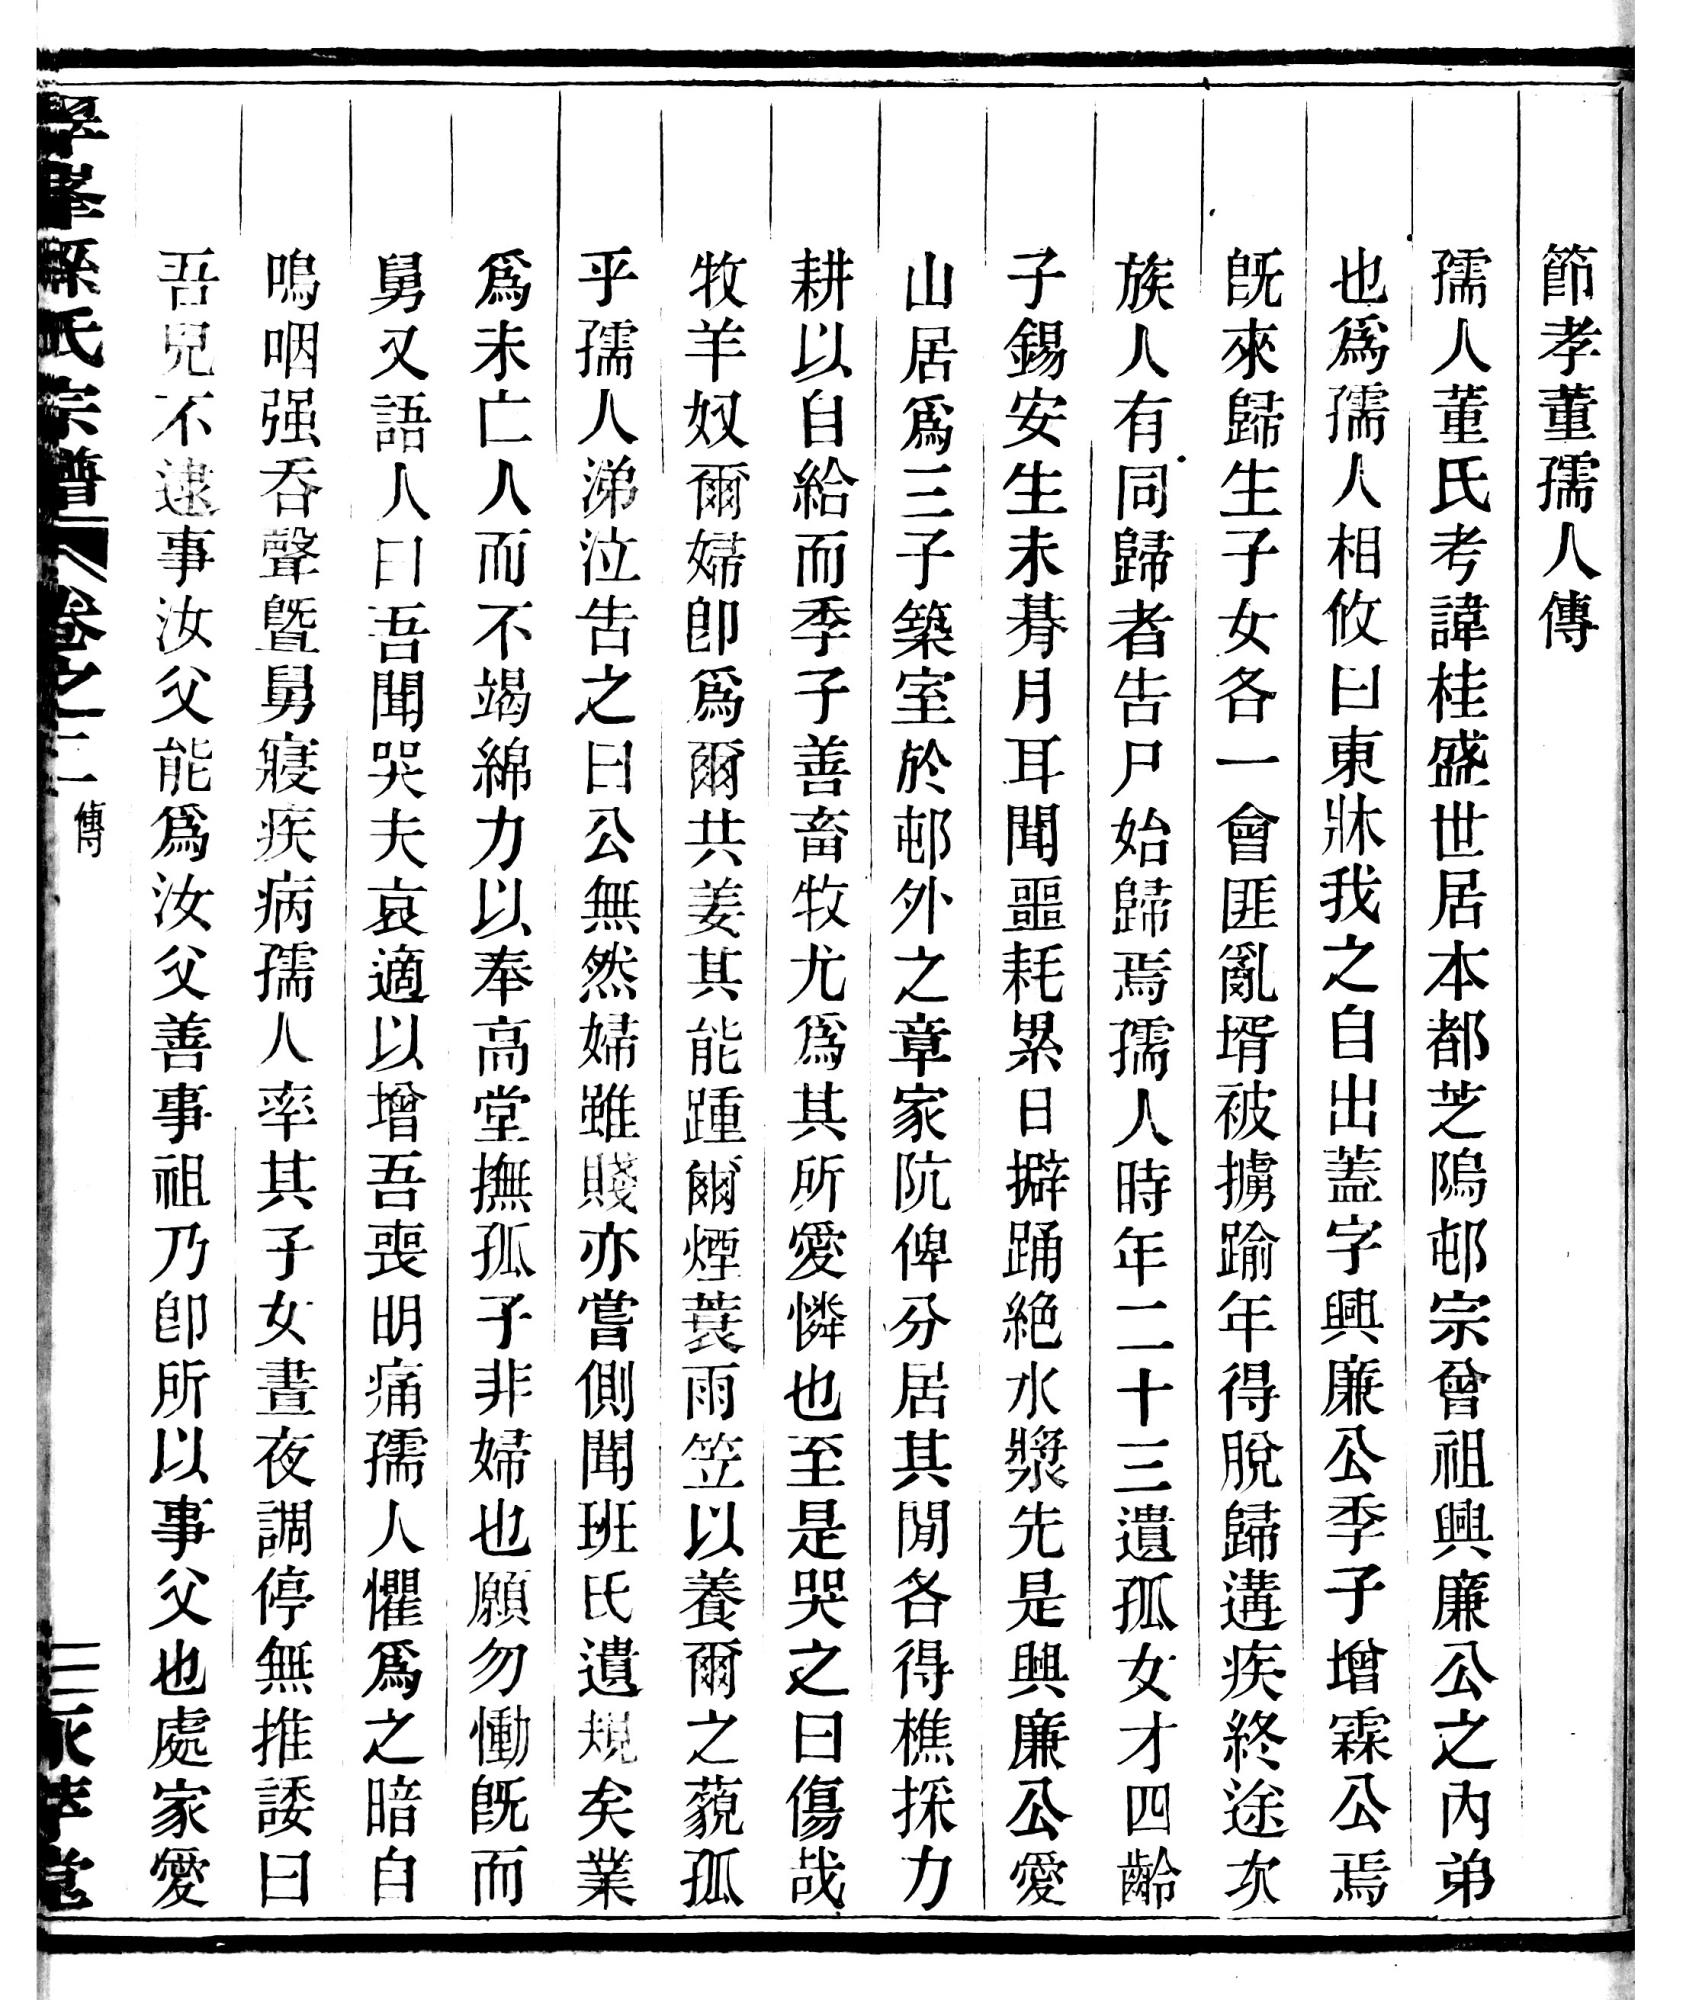 節孝董孺人傳
孺人董氏考諱桂盛世居本都芝隖邨宗曾祖興廉公之內弟
也爲孺人相攸曰東牀我之自出蓋字興廉公季子增霖公焉
旣來歸生子女各一會匪亂壻被擄踰年得脫歸遘疾終途次
族人有同歸者告尸始歸焉孺人時年二十三遺孤女才四齡
子錫安生未朞月耳聞噩耗累日擗踊絶水漿先是興廉公愛
山居爲三子築室於邨外之章家阬俾分居其閒各得樵採力
耕以自給而季子善畜牧尤爲其所愛憐也至是哭之曰傷哉
牧羊奴爾婦卽爲爾共姜其能踵爾煙蓑雨笠以養爾之藐孤
乎孺人涕泣告之曰公無然婦雖賤亦嘗側聞班氏遺規矣業
爲未亡人而不竭綿力以奉高堂撫孤子非婦也願勿慟旣而
舅又語人曰吾聞哭夫哀適以增吾喪明痛孺人懼爲之暗自
嗚咽强吞聲曁舅寢疾病孺人率其子女晝夜調停無推諉曰
吾兒不逮事汝父能爲汝父善事祖乃卽所以事父也處家愛
孫氏宗譜 卷之二 傳 三 永萃堂